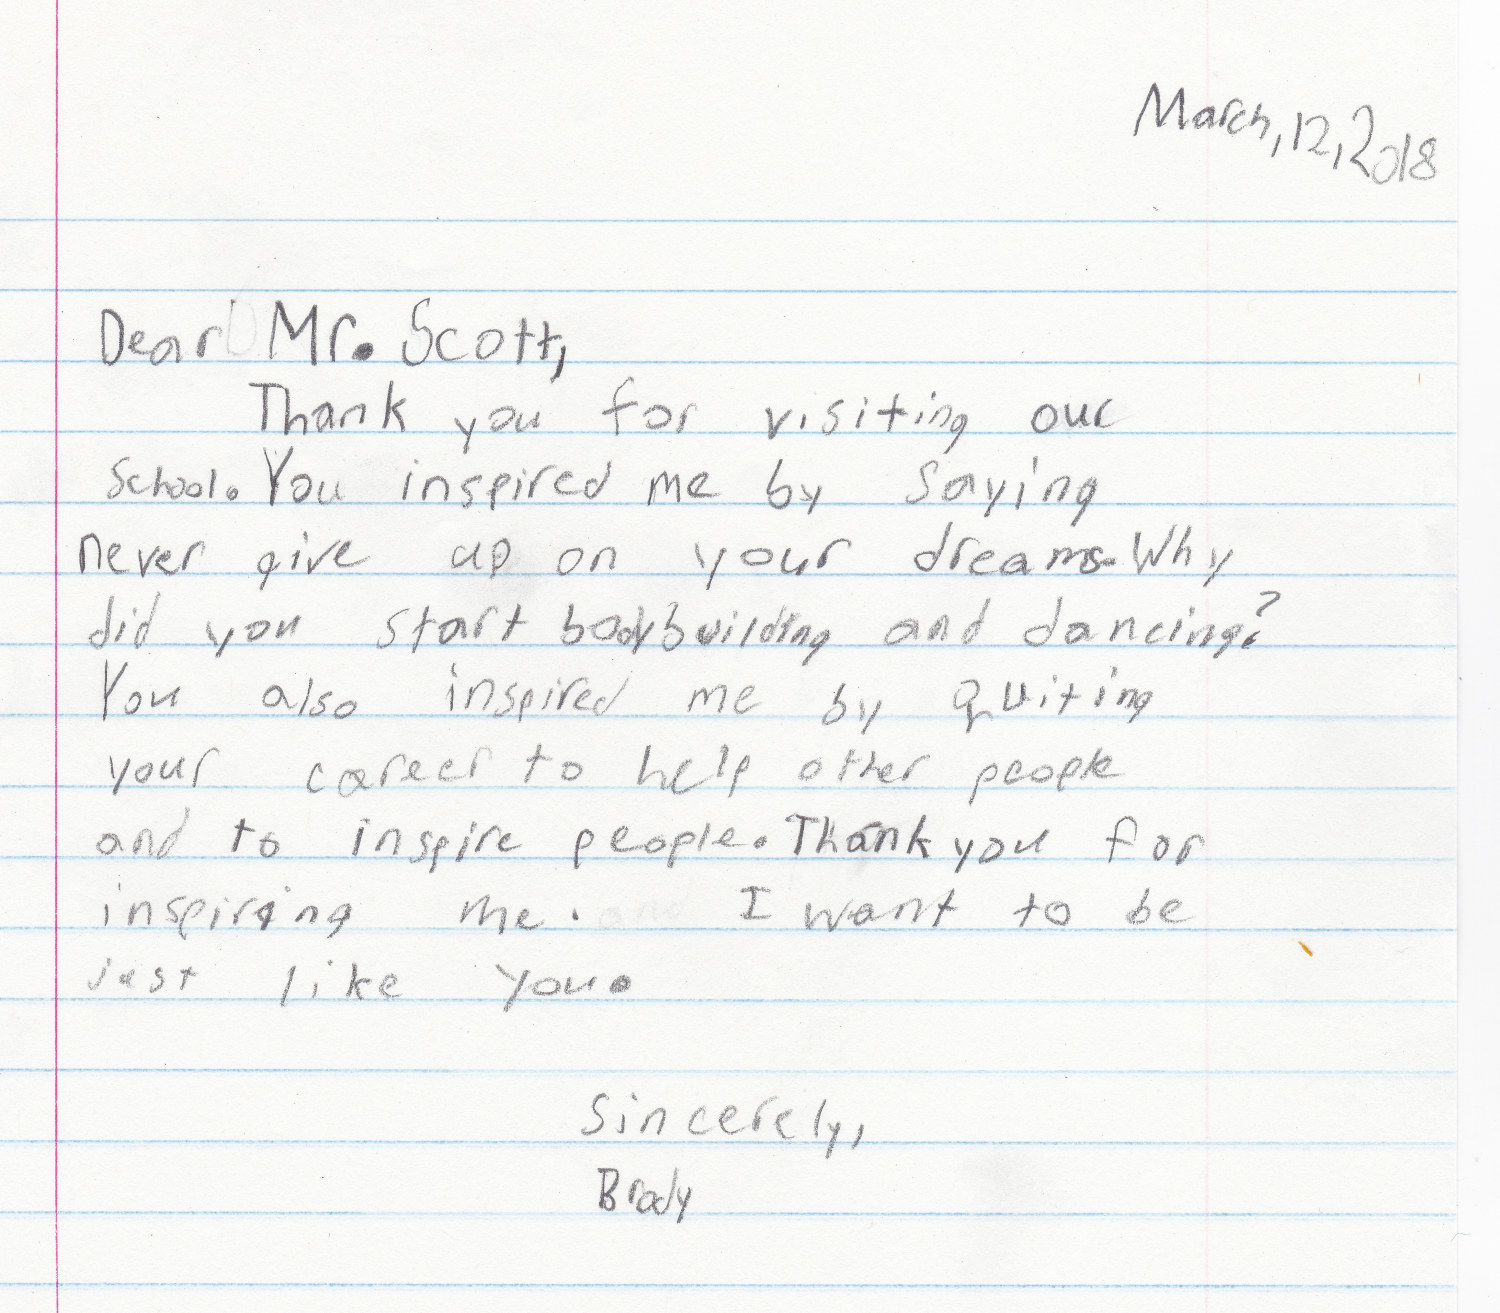 March, 12, 2018
Dear Mr. Scott,
Thank you for visiting our
school. You inspired me by saying
never give up on your dreams. Why
did you start bodybuilding and dancing?
You also inspired me by quiting
your career to help other people
and to inspire people. Thank you for
inspiring me. I want to be
just like you.
Sincerely,
Brady